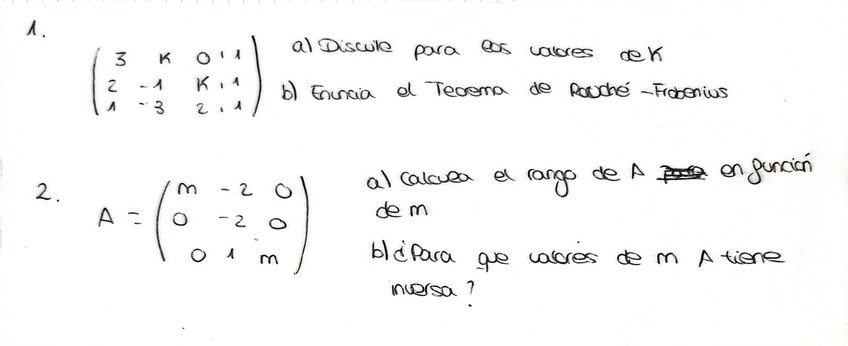 1.
3 K 0 1 a) Discute para los valores de K
2 -1 K 1 b) Enuncia el Teorema de Rouché -Frobenius
1 -3 2 1
2. A = a) Calcula el rango de A en función
m -2 0 de m
0 -2 0
0 1 m b) ¿Para que valores de m A tiene
inversa?